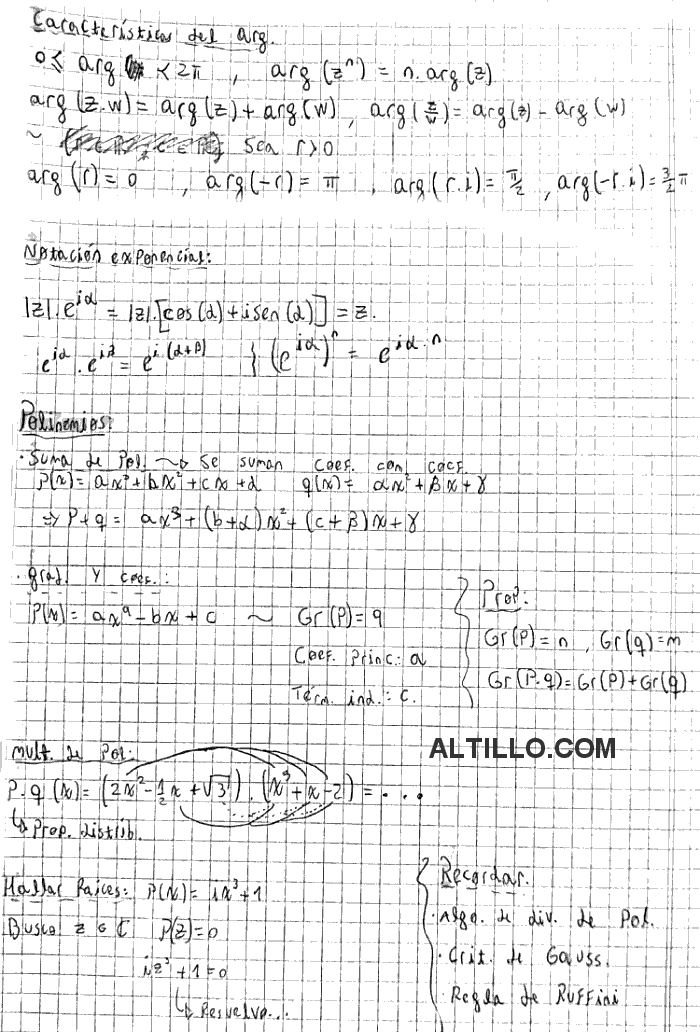 Características del arg.
0 ≤ arg < 2π , arg (zⁿ) = n. arg (z)
arg (z.w) = arg (z) + arg (w) , arg (z/w) = arg (z) - arg (w)
~ Sea r>0
arg (r) = 0 , arg (-r) = π , arg (r.i) = π/2 , arg (-r.i) = 3/2 π
Notación exponencial:
|z|.e^{iα} = |z|.[cos (α) + i sen (α)] = z.
e^{iα} . e^{iβ} = e^{i.(α+β)} } (e^{iα})ⁿ = e^{iα.n}
Polinomios:
· Suma de Pol. ~> Se suman coef. con coef.
P(x) = ax³ + bx² + cx + d q(x) = αx² + βx + γ
=> P+q = ax³ + (b+α)x² + (c+β)x + γ
· grad. y coef.:
P(x) = ax⁹ - bx + c ~ Gr(P) = 9
Coef. Princ: a
Térm. ind.: c.
Prop:
Gr(P) = n , Gr(q) = m
Gr(P.q) = Gr(P) + Gr(q)
mult. de Pol:
P.q (x) = (2x² - 1/2 x + √3) . (x³ + x - 2) = . . .
↳ Prop. distrib.
ALTILLO.COM
Hallar Raíces: P(x) = ix³ + 1
Busco z ∈ ℂ P(z) = 0
iz³ + 1 = 0
↳ Resuelvo...
Recordar.
· Algo. de div. de Pol.
· Crit. de Gauss.
· Regla de Ruffini